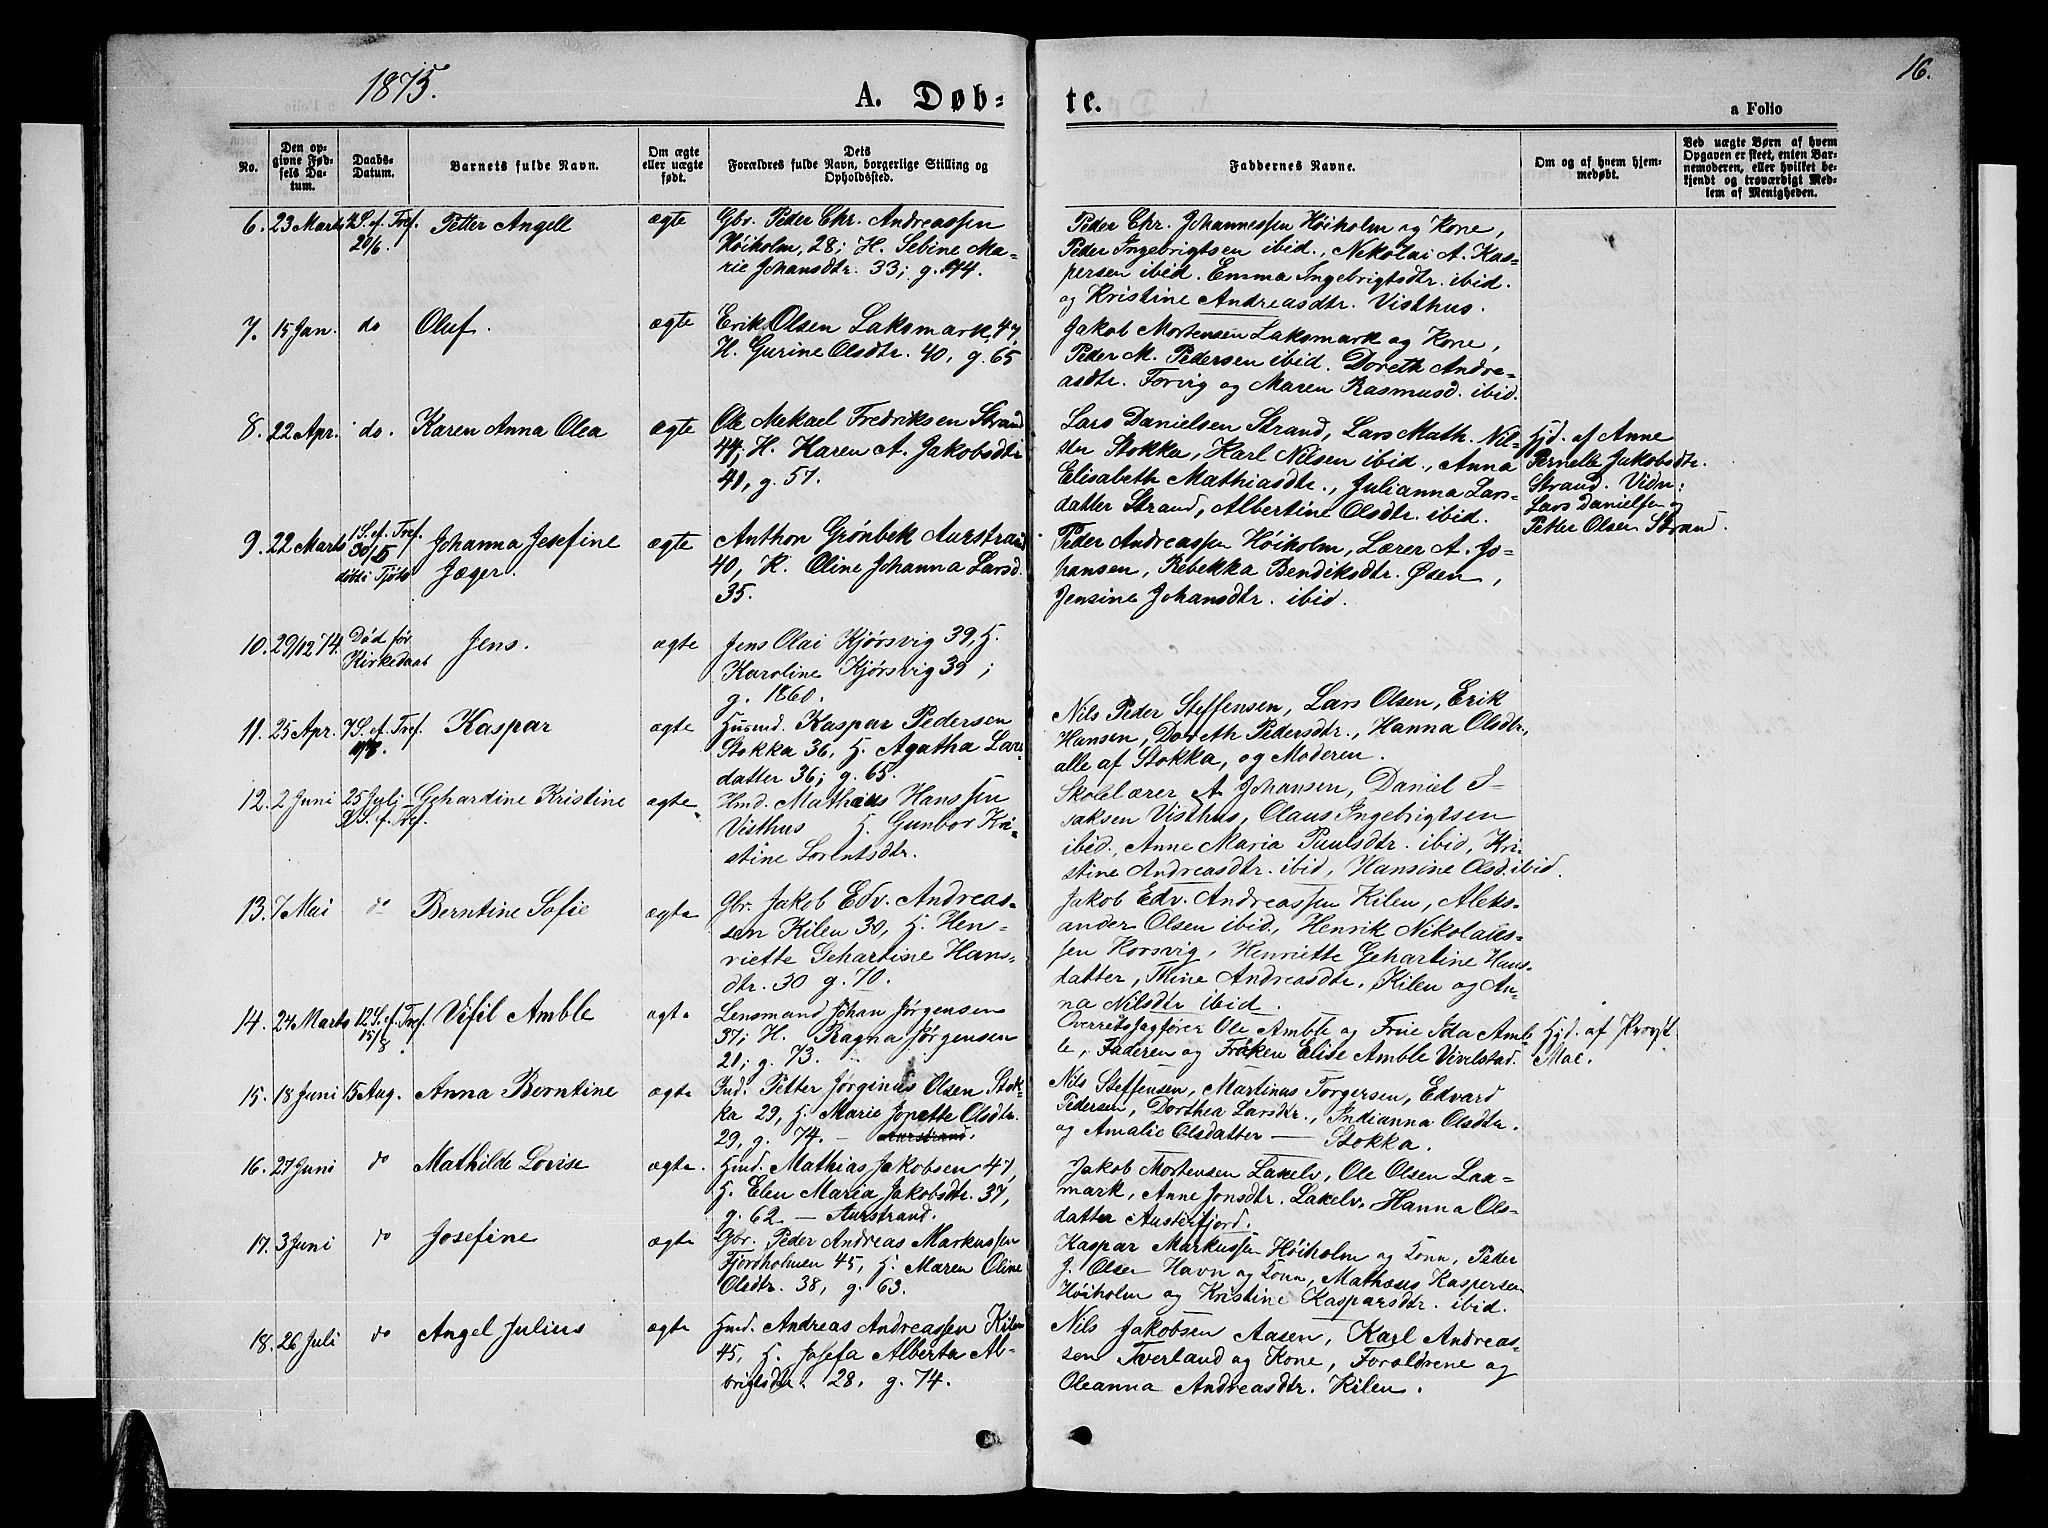 1875.
A. Døb-
te.
16.
a Folio
No.
Den op-
givne Fød-
sels Da-
tum.
Daabs-
Datum.
Barnets fulde Navn.
Om ægte
eller uægte
født.
Dets
Forældres fulde Navn, borgerlige Stilling og
Opholdssted.
Faddernes Navne.
Om og af hvem hjem-
medøbt.
Ved uægte Børn af hvem
Opgaven er skeet, enten Bar-
nemoderen, eller hvilket be-
kjendt og troværdigt Med-
lem af Menigheden.
6. 23 Marts 4 S. ef. Tref.
20/6.
Petter Angell
ægte
Gbr. Peder Chr. Andreassen
Høiholm, 28; H. Sebine Ma-
rie Johansdtr. 33; g. 74.
Peder Chr. Johannessen Høiholm og Kone,
Peder Ingebrigtsen ibid., Nikolai A. Kas-
persen ibid. Emma Ingebrigtsdtr. ibid.
og Kristine Andreasdtr. Visthus.
7. 15 Jan. do Oluf. ægte
Erik Olsen Laksmark, 47,
H. Gurine Olsdtr. 40, g. 65
Jakob Mortensen Laksmark og Kone,
Peder M. Pedersen ibid. Doreth Andre-
asdtr. Forvig og Maren Rasmusd. ibid.
8. 22 Apr. do. Karen Anna Olea ægte
Ole Mekael Fredriksen Strand
44; H. Karen A. Jakobsdtr
40, g. 57.
Lars Danielsen Strand, Lars Math. Nil-
sen Stokka, Karl Nilsen ibid., Anna
Elisabeth Mathiasdtr., Julianna Lars-
datter Strand, Albertine Olsdtr. ibid.
Hjd. af Anne
Pernelle Jakobsdtr.
Strand. Vidn:
Lars Danielsen og
Petter Olsen Strand.
9. 22 Marts 1 S. ef. Tref.
30/5
døbt i Tjøtø
Johanna Josefine
Jæger.
ægte
Anthon Grønbek Aurstrand
40, K. Oline Johanna Larsd.
35.
Peder Andreassen Høiholm, Lærer A. Jo-
hansen, Rebekka Bendiksdtr. Øsen,
Jensine Johansdtr. ibid.
10. 29/12 74. Død før
Kirkedaab
Jens.
ægte
Jens Olai Kjørsvig 39, H.
Karoline Kjørsvig 39;
g. 1860.
11. 25 Apr. 7 S. ef. Tref.
Kaspar
ægte
Husmd. Kaspar Pedersen
Stokka 36, H. Agatha Lars
datter 36; g. 65.
Nils Peder Steffensen, Lars Olsen, Erik
Hansen, Doreth Pedersdtr., Hanna Olsdtr,
alle af Stokka, og Moderen.
12. 2 Juni 25 Juli
S. ef. Tref.
Gehardine Kristine
ægte
Hmd. Mathias Hanssen
Visthus H. Gunbor Kri-
stine Lorentsdtr.
Skolelærer A Johansen, Daniel I-
saksen Visthus, Olaus Ingebrigtsen
ibid., Anne Maria Paulsdtr. ibid, Kri-
stine Andreasdtr. ibid, Hansine Olsd. ibid.
13. 7 Mai do Berntine Sofie ægte
Gbr. Jakob Edv. Andreas-
sen Kilen 30, H. Hen-
riette Gehartine Hans-
dtr. 30 g. 70.
Jakob Edv. Andreassen Kilen, Aleks-
ander Olsen ibid., Henrik Nikolais-
sen Horsvig, Henriette Gehartine Hans-
datter, Thine Andreasdtr, Kilen og An-
na Nilsdtr ibid.
14. 24 Marts 12 S. ef. Tref.
15/8
Vifil Amble
ægte
Lensmand Johan Jørgensen
37; H. Ragna Jørgensen
20; g. 73.
Overretssagfører Ole Amble og Frue Ida Amb-
le, Faderen og Frøken Elise Amble Vivelstad.
Hjd. af Provst
Moe.
15. 18 Juni 15 Aug. Anna Berntine ægte
Ind. Petter Jørginus Olsen Stok-
ka 29, H. Marie Jonette Olsdtr.
29, g. 74. — Aurstrand.
Nils Steffensen, Martinus Torgersen, Edvard
Pedersen, Dorthea Larsdtr., Indianna Olsdtr.
og Amalie Olsdatter — Stokka.
16. 27 Juni do Mathilde Lovise ægte.
Hmd. Mathias Jakobsen 47,
H. Elen Maria Jakobsdtr. 37,
g. 62. — Aurstrand.
Jakob Mortensen Lakelv, Ole Olsen Lax-
mark, Anne Jonsdtr. Lakelv, Hanna Ols-
datter Austerfjord.
17. 3 Juni do Josefine ægte
Gbr. Peder Andreas Markussen
Fjordholmen 45, H. Maren Oline
Olsdtr. 38, g. 63.
Kaspar Markussen Høiholm og Kone, Peder
J. Olsen Havn og Kone, Mathæus Kaspersen
Høiholm og Kristine Kaspersdtr. ibid.
18. 26 Juli do Angel Julius ægte
Hmd. Andreas Andreassen Kilen
45, H. Josefa Alberta Al-
brigtsdtr. 28, g. 74.
Nils Jakobsen Aasen, Karl Andreas-
sen Tverland og Kone, Forældrene og
Oleanna Andreasdtr. Kilen.